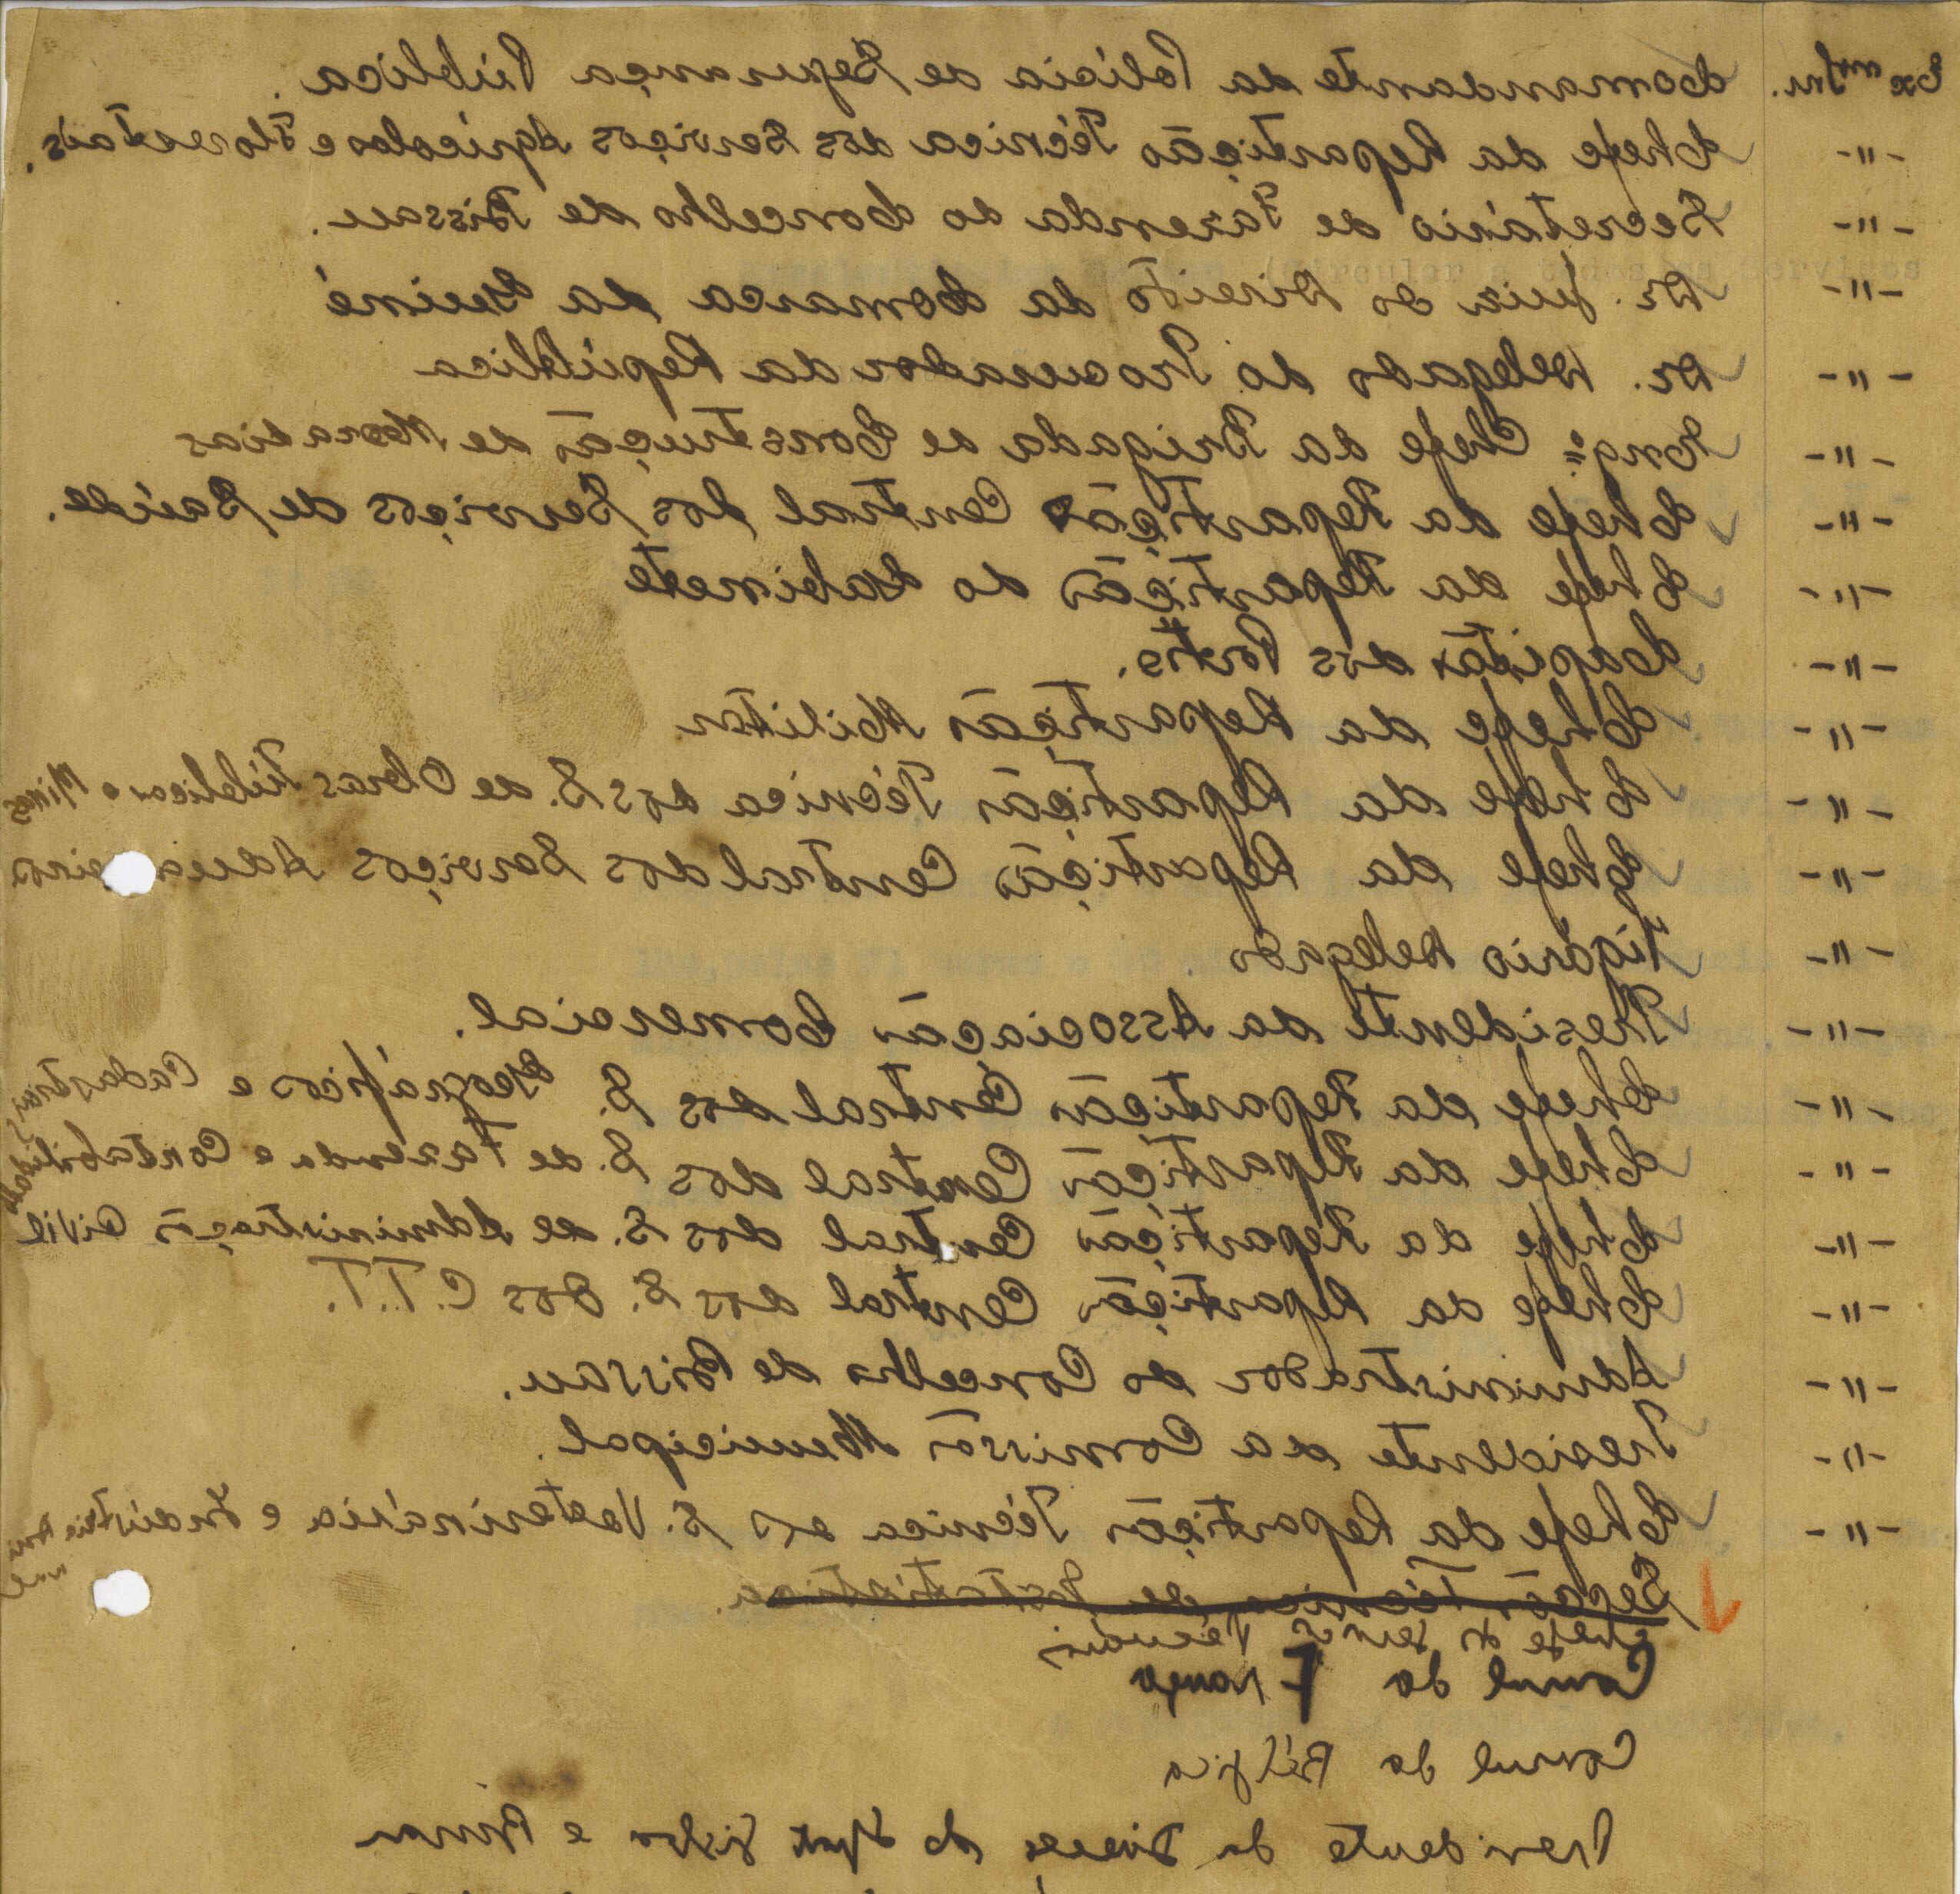 Ex.mo Snr. Comandante da Polícia de Segurança Pública.
-"- Chefe da Repartição Técnica dos Serviços Agrícolas e Florestais.
-"- Secretário de Fazenda do Concelho de Bissau.
-"- Dr. Juiz do Direito da Comarca da Guiné
-"- Dr. Delegado do Procurador da República
-"- Engº Chefe da Brigada de Construção de Moradias
-"- Chefe da Repartição Central dos Serviços de Saúde.
-"- Chefe da Repartição do Gabinete
-"- Capitão dos Portos.
-"- Chefe da Repartição Militar
-"- Chefe da Repartição Técnica dos S. de Obras Públicas e Minas
-"- Chefe da Repartição Central dos Serviços Aduaneiros
-"- Vigário Delegado
-"- Presidente da Associação Comercial.
-"- Chefe da Repartição Central dos S. Geográficos e Cadastrais
-"- Chefe da Repartição Central dos S. de Fazenda e Contabilidade
-"- Chefe da Repartição Central dos S. de Administração Civil
-"- Chefe da Repartição Central dos S. dos C.T.T.
-"- Administrador do Concelho de Bissau.
-"- Presidente da Comissão Municipal.
-"- Chefe da Repartição Técnica dos S. Veterinária e Indústria Animal
Secção Técnica de Estatística.
Chefe
Consul da França
Consul da Bélgica
Presidente da do Sport Lisboa e